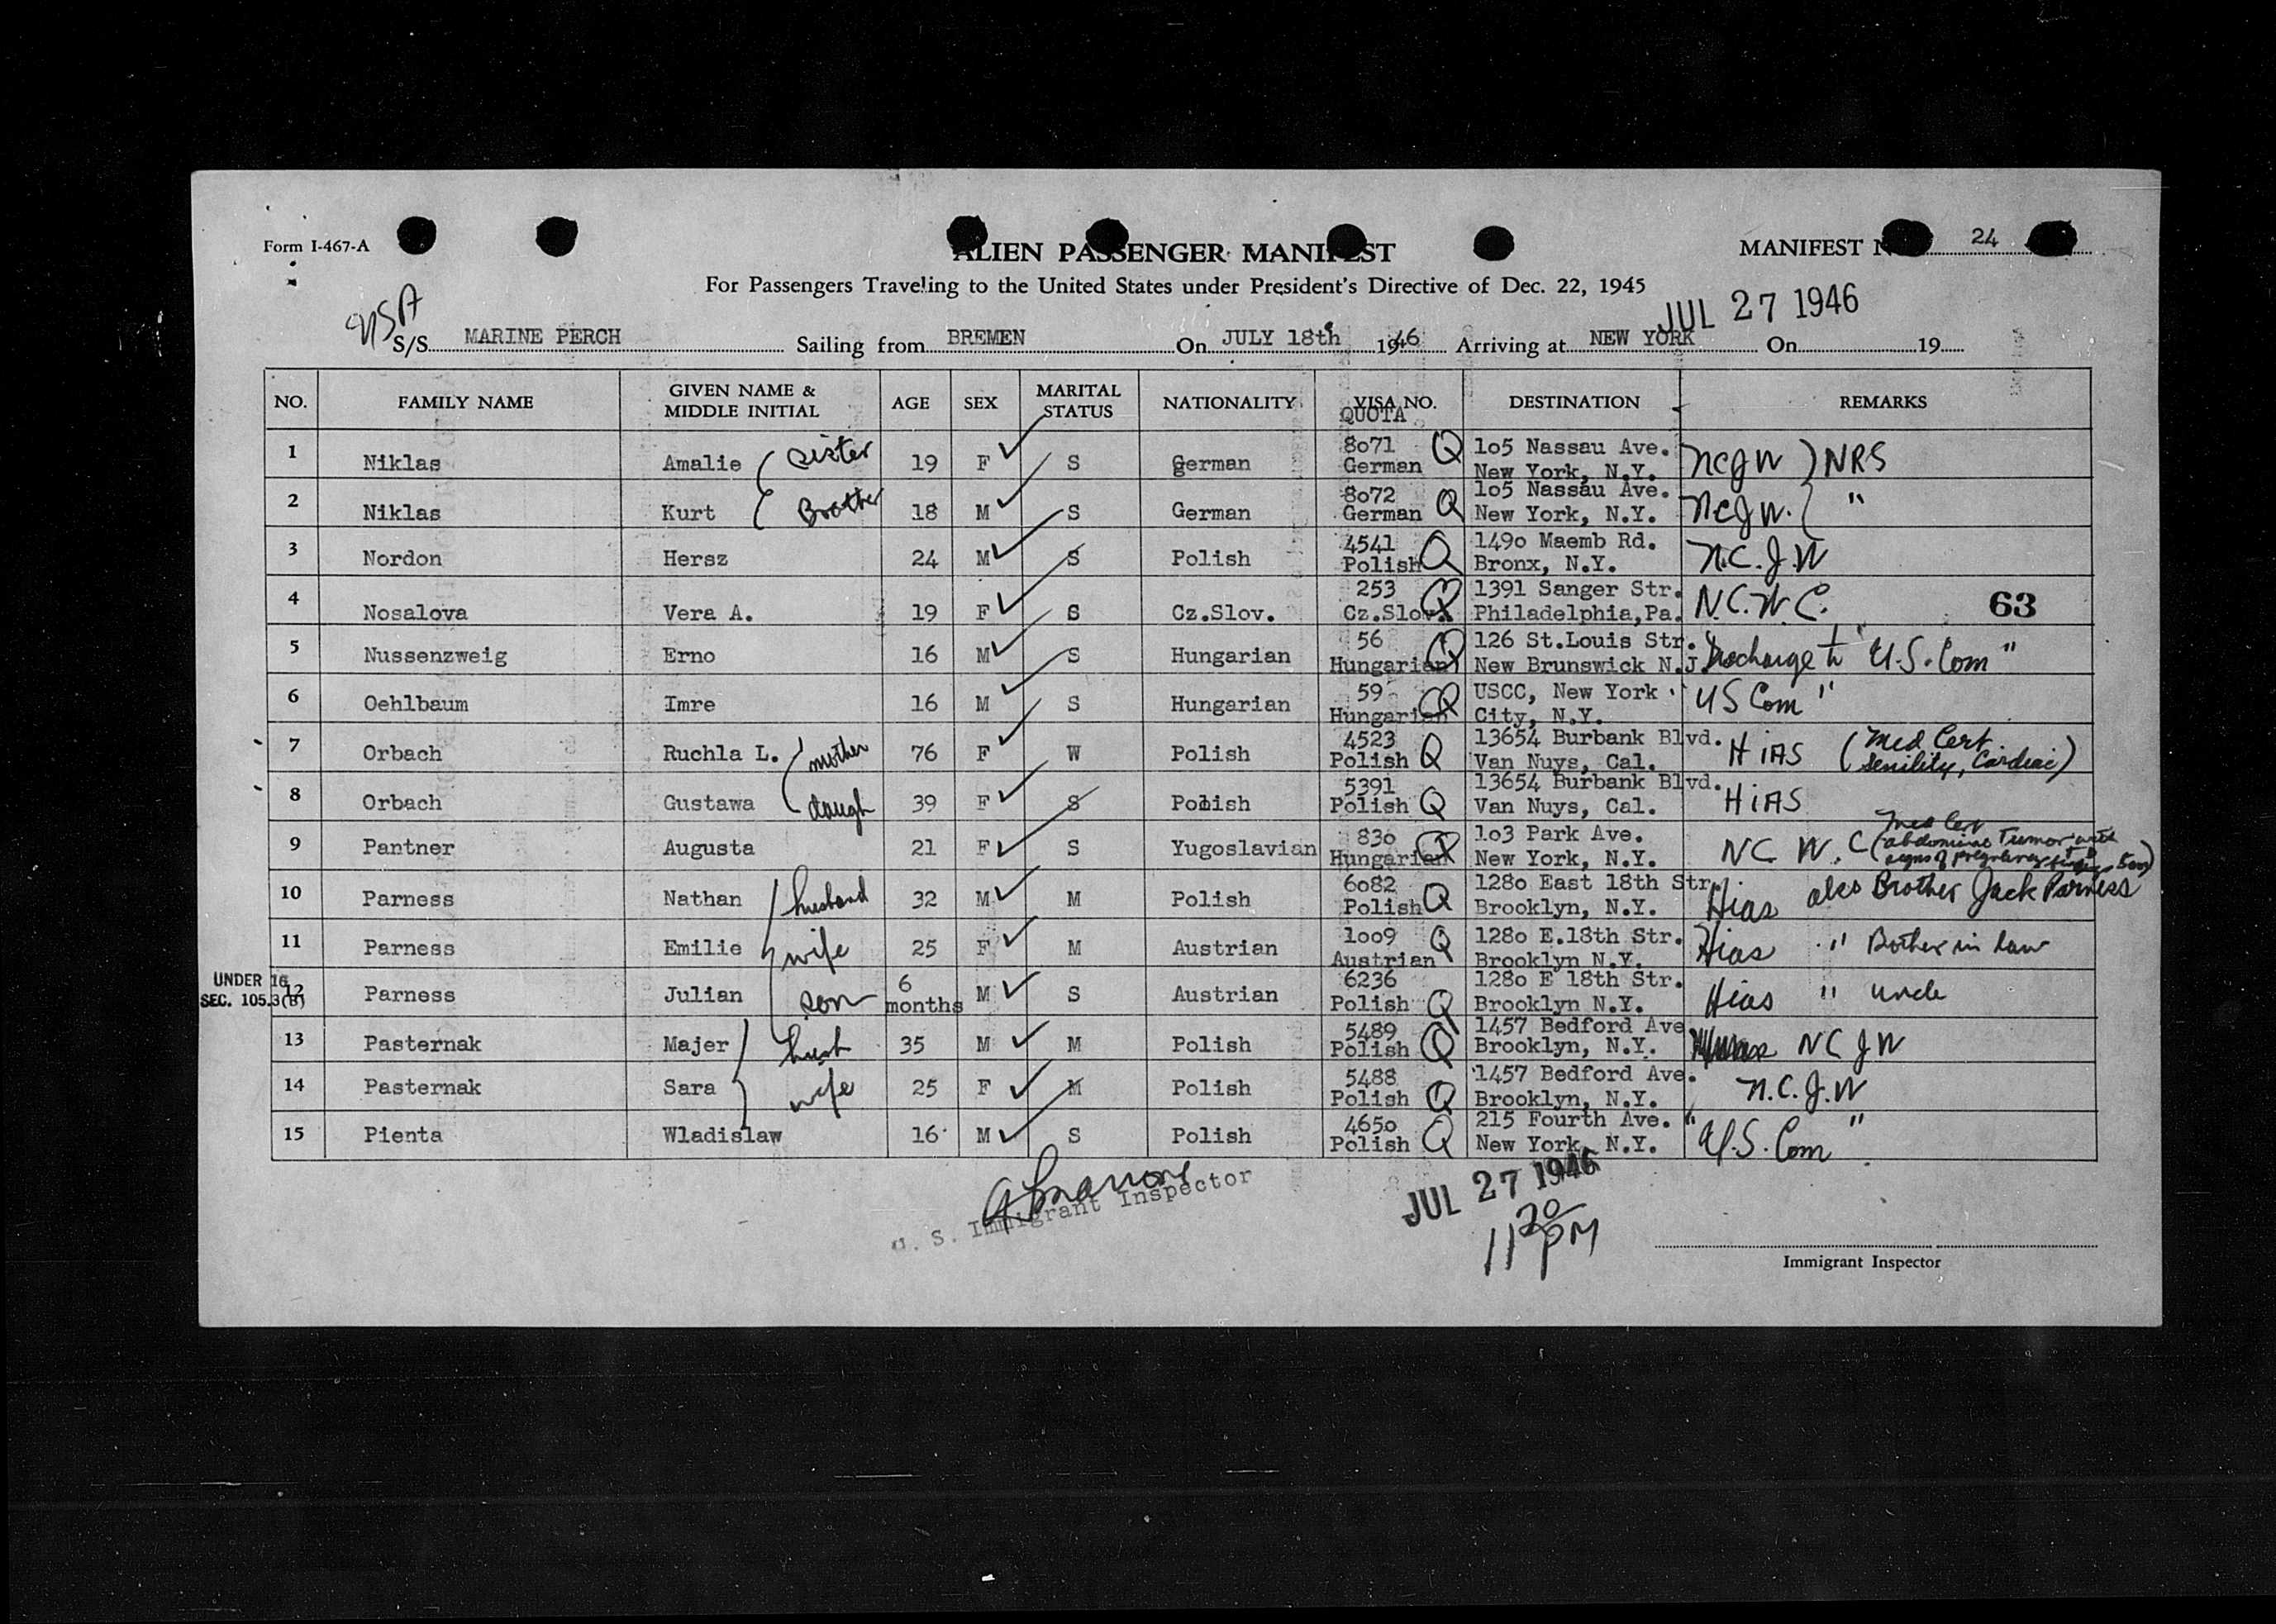 Form I-467-A
ALIEN PASSENGER MANIFEST
MANIFEST N 24
For Passengers Traveling to the United States under President's Directive of Dec. 22, 1945
JUL 27 1946
S/S MARINE PERCH Sailing from BREMEN On JULY 18th 1946 Arriving at NEW YORK On 19
NO. FAMILY NAME GIVEN NAME & MIDDLE INITIAL AGE SEX MARITAL STATUS NATIONALITY VISA NO. QUOTA DESTINATION REMARKS
1 Niklas Amalie sister 19 F S German 8071 German Q 105 Nassau Ave. New York, N.Y. NCJW NRS
2 Niklas Kurt Brother 18 M S German 8072 German Q 105 Nassau Ave. New York, N.Y. NCJW. "
3 Nordon Hersz 24 M S Polish 4541 Polish Q 1490 Maemb Rd. Bronx, N.Y. N.C.J.W
4 Nosalova Vera A. 19 F S Cz.Slov. 253 Cz.Slov. Q 1391 Sanger Str. Philadelphia,Pa. N.C.W.C. 63
5 Nussenzweig Erno 16 M S Hungarian 56 Hungarian Q 126 St.Louis Str. New Brunswick N.J. Discharge to "U.S. Com"
6 Oehlbaum Imre 16 M S Hungarian 59 Hungarian Q USCC, New York City, N.Y. "US Com"
7 Orbach Ruchla L. mother 76 F W Polish 4523 Polish Q 13654 Burbank Blvd. Van Nuys, Cal. HIAS (Med Cert. Senility, Cardiac)
8 Orbach Gustawa daugh 39 F S Polish 5391 Polish Q 13654 Burbank Blvd. Van Nuys, Cal. HIAS
9 Pantner Augusta 21 F S Yugoslavian 830 Hungarian Q 103 Park Ave. New York, N.Y. NC W.C (Med Cert abdominal Tumor with signs of pregnancy
10 Parness Nathan husband 32 M M Polish 6082 Polish Q 1280 East 18th Str. Brooklyn, N.Y. Hias also Brother Jack Parness
11 Parness Emilie wife 25 F M Austrian 1009 Austrian Q 1280 E.18th Str. Brooklyn N.Y. Hias " Bother in law
UNDER 16 SEC. 105.3(B)
12 Parness Julian son 6 months M S Austrian 6236 Polish Q 1280 E 18th Str. Brooklyn N.Y. Hias " uncle
13 Pasternak Majer husb 35 M M Polish 5489 Polish Q 1457 Bedford Ave Brooklyn, N.Y. NCJW
14 Pasternak Sara wife 25 F M Polish 5488 Polish Q 1457 Bedford Ave. Brooklyn, N.Y. N.C.J.W
15 Pienta Wladislaw 16 M S Polish 4650 Polish Q 215 Fourth Ave. New York, N.Y. "U.S. Com"
U. S. Immigrant Inspector
JUL 27 1946
11 30 PM
Immigrant Inspector